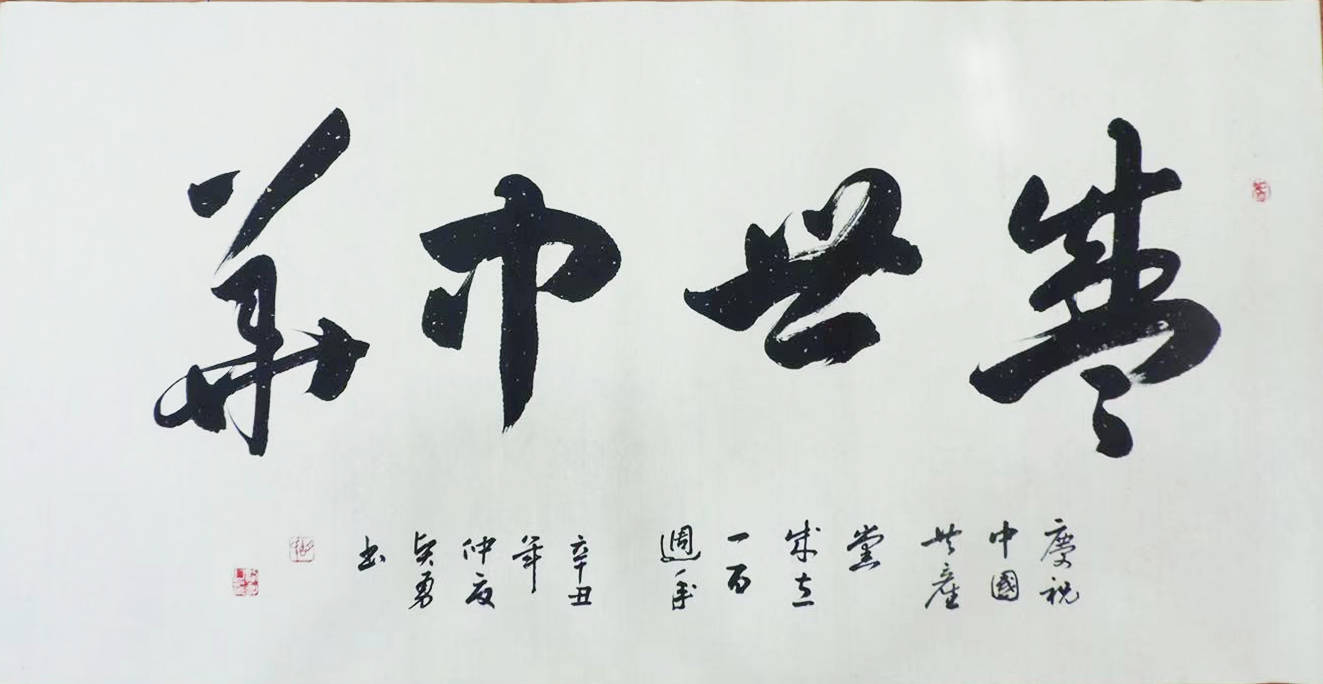 盛世中華
慶祝
中國
共產
黨
成立
一百
週年
辛丑
年
仲夏
吳勇
書